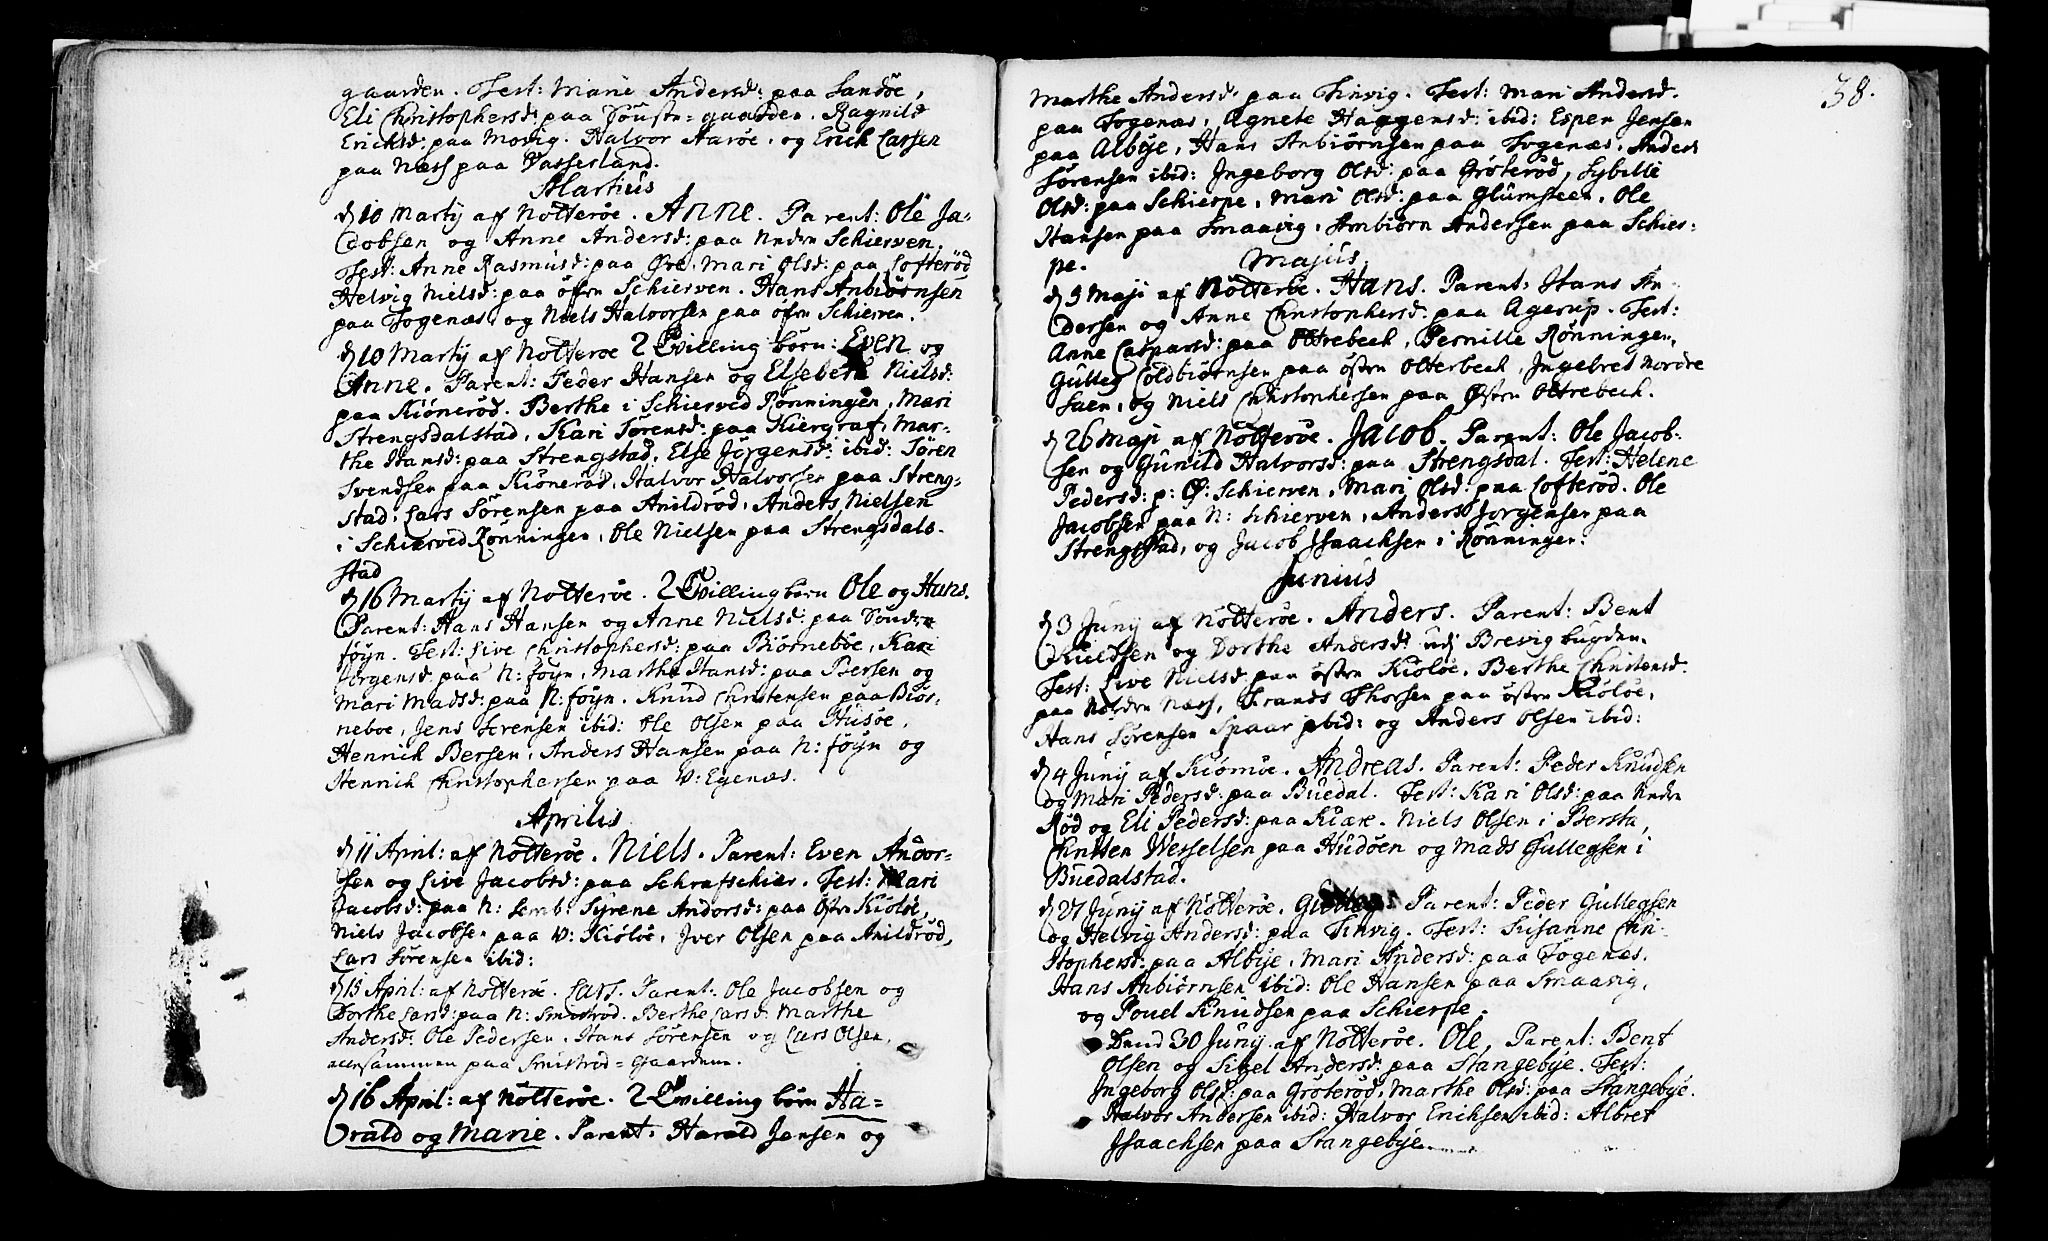 gaarden. Test: Marie Andersd: paa Sandöe,
Eli Christophersd: paa Föuste-gaarden. Ragnild
Ericksd: paa Movig. Halvor Aaröe, og Erick Larsen
paa Næss paa Vasserland.
Martius
d 10 Martij af Nötteröe. Anne. Parent: Ole Ja-
cobsen og Anne Andersd: paa Nedre Schierven.
Test: Anne Rasmusd: paa Öre, Mari Olsd: paa Lofteröd
Helvig Nielsd: paa öfre Schierven. Hans Anbiörnsen
paa Togenæs, og Niels Halvorsen paa öfre Schierven.
d 10 Martij af Nötteröe 2 Tvilling börn: Even og
Anne. Parent: Peder Hansen og Elseberk Nielsd:
paa Kiöneröd. Berthe i Schierved Rönningen, Mari
Strengsdalstad, Kari Sörensd: paa Hiergraf, Mar-
the Hansd: paa Strengstad, Else Jörgensd: ibid: Sören
Svendsen paa Kiöneröd, Halvor Halvorsen paa Streng-
stad, Lars Sörensen paa Anildröd, Anders Nielsen
i Schierved Rönningen, Ole Nielsen paa Strengsdals-
stad
d 16 Martij af Nötteröe. 2 Tvilling börn Ole og Hans.
Parent: Hans Hansen og Anne Nielsd: paa Söndre
föyn. Test: Live Christophersd: paa Biörneböe, Kari
Jörgensd: paa N: föyn, Marthe Hansd: paa Bersen og
Mari Madsd: paa N: föyn. Knud Christensen paa Biör-
neboe, Jens Sörensen ibid: Ole Olsen paa Husöe,
Henrich Bersen, Anders Hansen paa N: föyn og
Henrich Christophersen paa V: Egenæs.
Aprilis
d 11 April: af Nötteröe. Niels. Parent: Even Andor-
sen og Live Jacobsd: paa Schrafschier. Test: Mari
Jacobsd: paa N: Semb: Syrene Andorsd: paa Östre Kiölöe,
Niels Jacobsen paa V: Kiölöe, Iver Olsen paa Anildröd,
Lars Sörensen ibid:
d 15 April: af Nötteröe. Lars. Parent: Ole Jacobsen og
Dorthe Larsd: paa N: Smidsröd. Berthe Larsd: Marthe
Andersd: Ole Pedersen, Hans Sörensen og Lars Olsen,
allesammen paa Smidsröd-Gaardene.
d 16 April: af Nötteröe. 2 Tvilling börn Ha=
rald og Marie. Parent: Harald Jensen og
38.
Marthe Andersd: paa Tinvig. Test: Mari Andersd.
paa Togenæs, Agnete Haagensd: ibid: Espen Jensen
paa Albije, Hans Anbiörnsen paa Togenæs, Anders
Sörensen ibid: Ingeborg Olsd: paa Gröteröd, Sybille
Olsd: paa Schierpe, Mari Olsd: paa Glumsteen, Ole
Hansen paa Smaavig, Anbiörn Andersen paa Schier:
pe.
Majus
d 3 Maji af Nötteröe. Hans. Parent: Hans An-
dersen og Anne Christophersd: paa Agerup. Test:
Anne Caspersd: paa Ottrebech, Pernille Rönningen,
Gulleg Coldbiörnsen paa östre Otterbech, Ingebret Nordre
Saen, og Niels Christophersen paa Östre Ottrebech.
d 26 Maji af Nötteröe. Jacob. Parent: Ole Jacob-
sen og Gunild Halvorsd: paa Strengsdal. Test: Helene
Pedersd: p: Ö: Schierven, Mari Olsd: paa Lofteröd. Ole
Jacobsen paa N: Schierven, Anders Jorgensen paa
Strengstad, og Jacob Isaachsen i Rönningen.
Junius
d 3 Junij af Nötteröe. Anders. Parent: Bent
Knudsen og Dorthe Andersd: udj Brevig bugden.
Test: Live Nielsd: paa östre Kiölöe, Berthe Christensd:
paa Nordre Næss, Frands Thorsen paa östre Kiölöe,
Hans Sörensen Spaar ibid: og Anders Olsen ibid:
d 4 Junij af Kiömöe. Andreas. Parent: Peder Knudsen
og Mari Pedersd: paa Buedal. Test: Kari Olsd: paa Nedre
Röd og Eli Pedersd: paa Kiære. Niels Olsen i Bersta,
Christen Wesselsen paa Hudöen og Mads Gullegsen i
Buedalstad.
d 27 Junij af Nötteröe. Parent: Peder Gullegsen
og Helvig Andersd: paa Tinvig. Test: Susanne Chri-
stophersd: paa Albije, Mari Andersd: paa Togenæs.
Hans Anbiörnsen ibid: Ole Hansen paa Smaavig,
og Pouel Knudsen paa Schierpe.
Dend 30 Junij af Nötteröe. Ole, Parent: Bent
Olsen og Sibel Andersd: paa Stangebije. Test:
Ingeborg Olsd: paa Gröteröd, Marthe Olsd: paa Stangebije.
Halvor Andersen ibid: Halvor Erichsen ibid: Albret
Isaachsen paa Stangebije.